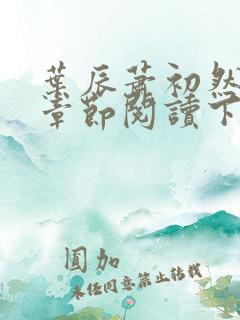 葉辰蕭初然
章節閱讀下
圓加
未经同意禁止转载